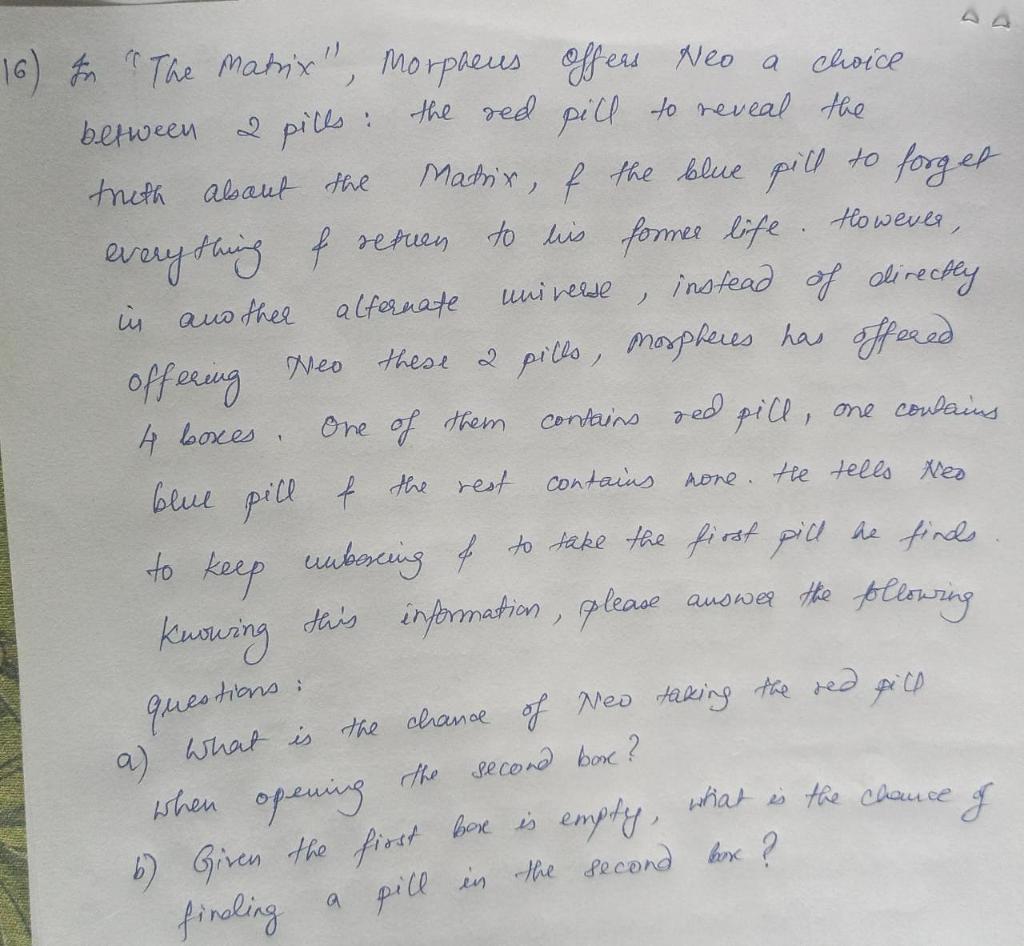 16) In "The Matrix", Morpheus offers Neo a choice
between 2 pills : the red pill to reveal the
truth about the Matrix, & the blue pill to forget
everything & return to his former life. However,
in another alternate universe, instead of directly
offering Neo these 2 pills, Morpheus has offered
4 boxes. One of them contains red pill, one contains
blue pill & the rest contains none. He tells Neo
to keep unboxing & to take the first pill he finds.
Knowing this information, please answer the following
questions :
a) What is the chance of Neo taking the red pill
when opening the second box?
b) Given the first box is empty, what is the chance of
finding a pill in the second box ?